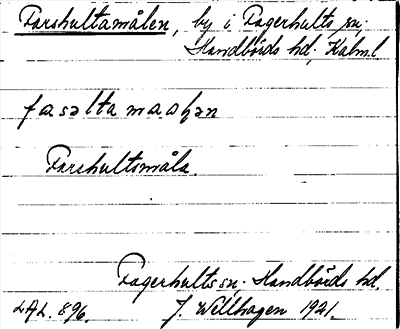 Farshultamålen, by i Fagerhults sn;
Handbörds hd; Kalm.l
faʂəltamaaɭən
Farshultsmåla.
Fagerhults sn; Handbörds hd.
LAL. 896. J. Wellhagen 1921.